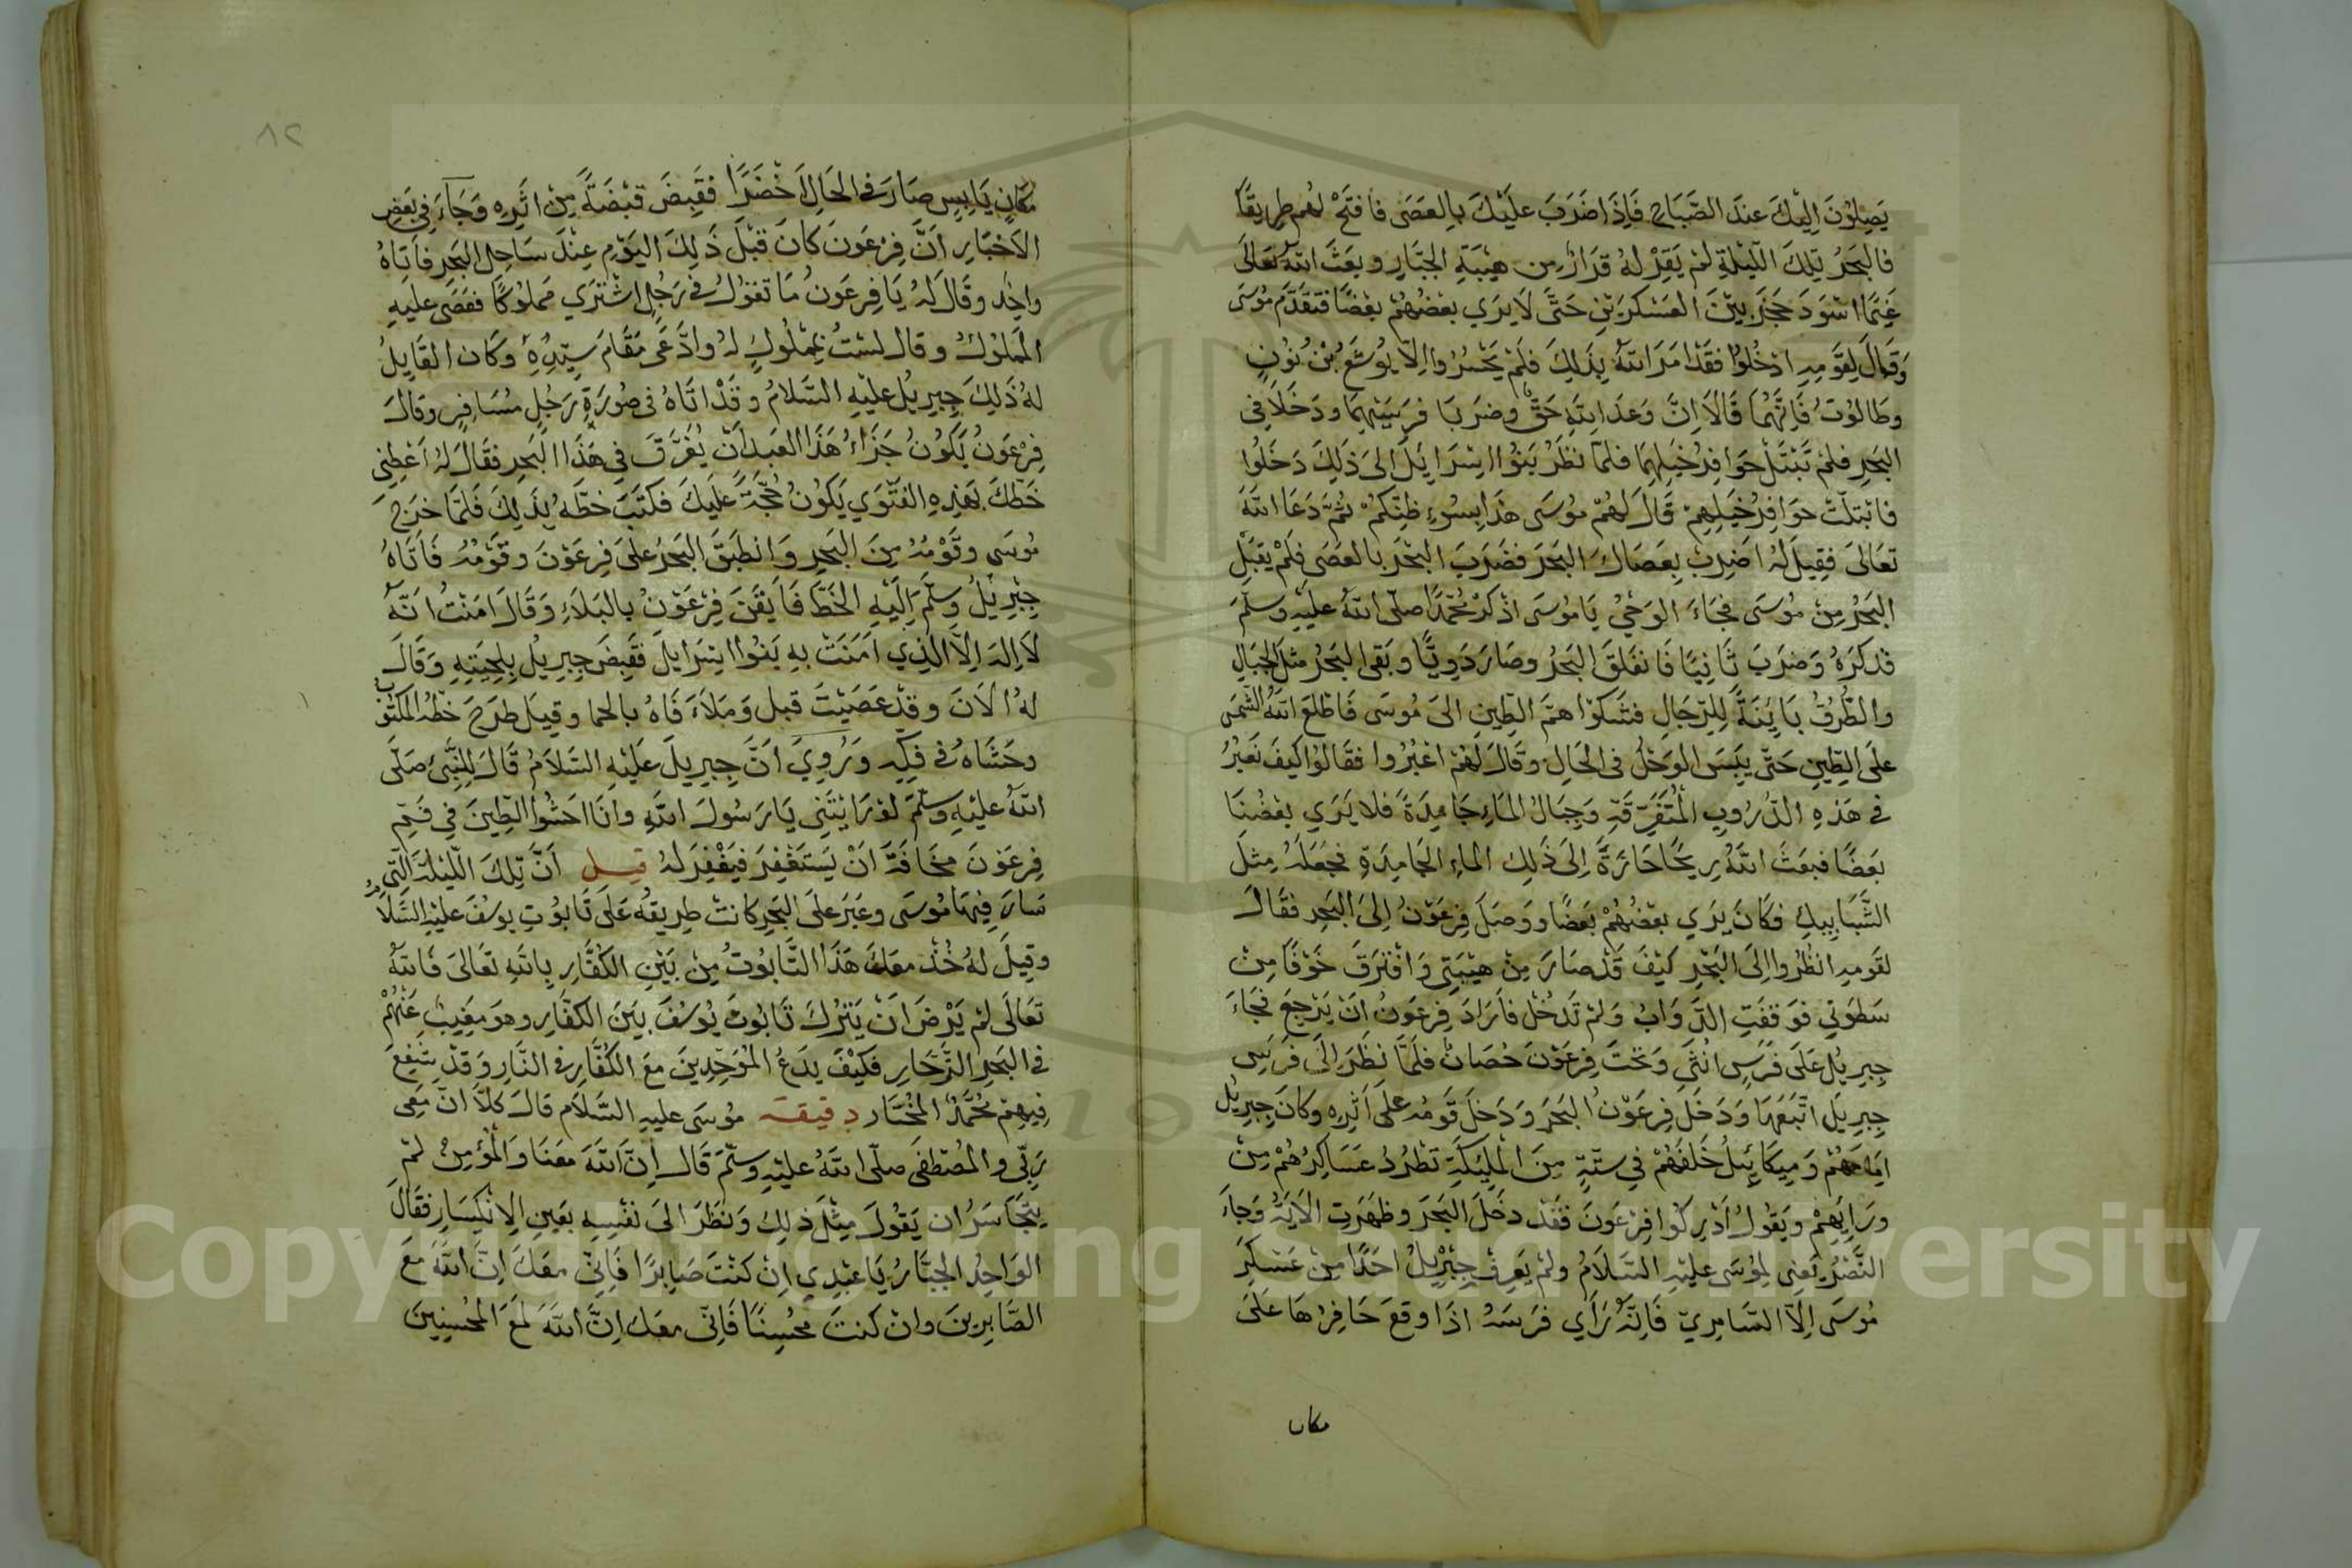 يَصِلُونَ اِلَيْكَ عِندَ الصَّبَاحِ فَاِذَا ضَرَبَ عَلَيْكَ بِالعَصَى فافتَحْ لهُم طريقًا
فالبَحرُ تِلكَ اللَّيْلَةِ لَمْ يَقِرْ لهُ قرَارٌ مِن هَيْبَةِ الجَبَّارِ وبعَثَ اللهُ تعَالَى
غَيْمًا اسْوَدَ حَجَزَ بيْنَ العَسْكرَيْنِ حَتَّى لَا يَرَي بعْضُهُمْ بعْضًا فتقَدَّم مُوسَى
وَقَالَ لِقَومِهِ ادْخُلُوا فقَدْ امَرَ اللهُ بِذَلِكَ فلَمْ يَجْسُرُوا اِلَّا يُوشَعُ بْنُ نُونٍ
وطَالُوْتُ فَاِنَّهُمَا قَالَا اِنَّ وَعدَ اللهِ حَقٌّ وضرَبَا فرسَيْهِمَا ودَخَلَا فِي
البَحرِ فلَمْ تَبْتَلْ حَوَافِرُ خَيلِهِمَا فلمَّا نظَرُ بَنُوا اِسْرَايِلَ اِلى ذَلِكَ دَخَلُوا
فابْتلَّتْ حوَافِرُ خَيْلِهِمْ قَالَ لَهُمْ مُوسَى هَذَا بِسُوءِ ظنِّكمْ ثمَّ دَعَا اللهَ
تعَالىَ فقِيلَ لهُ اضرِبْ بِعَصَاكَ البَحرَ فضَرَبَ البَحْرَ بالعَصَى فلَمْ يقبَلِ
البَحْرُ مِنْ مُوسَى فجَاءَ الوَحْيُ يَامُوسَى اذْكرْ مُحَمَّدًا صلّى اللهُ علَيْهِ وسلّمَ
فذكرَهُ وَضرَبَ ثَانِيًا فَانفلَقَ البَحْرُ وصَارَ دَوِيًّا وبَقى البَحْرُ مِثلَ الجِبَالِ
والطُّرُقُ بَايِنَةً لِلرِّجَالِ فشَكوْا همَّ الطِّينِ الىَ مُوسَى فَاطْلعَ اللهُ الشَّمسَ
علَى الطِّينِ حَتّى يَبِسَ الوَحْلُ فى الحَالِ وقَالَ لَهُمْ اعْبُرُوا فقَالُوا كيفَ نَعْبُرُ
فى هَذِهِ الدُّرُوبِ المُتَفَرِّقَةِ وَجِبَالُ المَاءِ جَامِدَةً فلا يَرَي بعْضُنَا
بَعضًا فبعَثَ اللهُ رِيحًا حَارَةً اِلىَ ذَلِكَ الماءِ الجَامِدَةِ فجَعَلهُ مِثلَ
الشَّبَابِيكِ فكَانَ يَرَي بعْضُهُمْ بَعضًا ووَصَلَ فِرعَوْنُ اِلىَ البَحرِ فقَالَ
لقَومِهِ انظُرُوا اِلىَ البَحْرِ كيْفَ قدْ صَارَ مِنْ هيْبَتِي وَافْترَقَ خَوْفًا مِنْ
سَطوَتِي فوَقفَتِ الدَّوَابُ وَلمْ تَدْخُلْ فأرَادَ فِرعَوْنُ انْ يَرْجِعَ فجَاءَ
جِبرِيلُ علَى فرَسٍ انثَى وَتَحْتَ فِرعَوْنَ حُصَانٌ فلَمَّا نظَرَ اِلىَ فرَسِ
جِبرِيلَ اتَّبَعَهَا وَدَخَلَ فِرعَوْنُ البَحرَ وَدَخلَ قَومُهُ علَى اَثرِهِ وكانَ جِبرِيْلُ
اَمَامَهُمْ وَمِيكَائِيلُ خَلفَهُمْ فِي سِتّةٍ مِنَ المَلَيِكَةِ تَطْرُدُ عَسَاكِرُهُمْ مِنْ
وَرَايِهِمْ ويَقُولُ اَدْرِكُوا فِرعَونَ فقَدْ دخَلَ البَحرَ وظهَرَتِ الاَيَةُ وَجَاءَ
النَّصْرُ يَعْنِى لِمُوسَى علَيْهِ السَّلَامُ ولمْ يَعرِفْ جِبْرِيلُ احَدًا مِنْ عَسْكرِ
مُوسَى اِلَّا السَّامِرِيّ فَانهُ رَأَي فرَسَهُ اذَا وقعَ حَافِرُهَا عَلىَ
مكان
٨٢
مَكانٍ يَابِسٍ صَارَ فى الحَالِ اَخْضَرًا فقَبِضَ قبْضَةً مِنْ اثَرِهِ وَجَاءَ فِي بَعضِ
الاَخبَارِ اَنَّ فِرْعَونَ كانَ قبْلَ ذَلِكَ اليَوْمِ عِنْدَ سَاحِلِ البَحرِ فأتاهُ
واحِد وقَالَ لهُ يَا فِرعَونُ مَا تقوُلُ فى رَجُلٍ اشْترَي مَملوْكًا فعَصَى علَيهِ
المَملوْكُ وقالَ لسْتُ بمْلُوكٍ لهُ وادَّعَى مَقَامَ سيِّدِهِ وكان القَايِلُ
لهُ ذَلِكَ جِبرِيلُ علَيْهِ السَّلامُ وقدْ اتَاهُ فى صُورَةِ رَجُلٍ مُسَافِرٍ وقالَ
فِرْعَونُ يَكُونُ جَزَاءُ هَذَا العَبدِ اَنْ يُغَرَّقَ فِي هَذَا البَحرِ فقَالَ لهُ اَعْطِنِى
خَطَّكَ بهَذِهِ الفَتْوَي يَكُونُ حُجَّةً عَلَيكَ فكَتَبَ خطَّهُ بِذَلِكَ فَلمَّا خرَجَ
مُوسَى وقَوْمُهُ مِنَ البَحرِ وَانطَبَقَ البَحْرُ علَى فِرعَوْنَ وقَوْمُهُ فَاَتَاهُ
جِبْرِيْلُ وسَلَّمَ اِلَيْهِ الخَطَّ فَايْقَنَ فِرْعَوْنُ بالبَلاَءِ وَقَالَ امَنْتُ اَنَّهُ
لَا اِلهَ اِلَّا الَّذِي اَمَنَتْ بِهِ بَنُوا اِسْرَايِلَ فقَبِضَ جِبرِيْلُ بِلِحْيَتِهِ وَقَالَ
لهُ اَلاَنَ وقدْ عصَيْتَ قبلُ وَمَلاَءَ فَاهُ بالحما وقِيلَ طرَحَ خَطّهُ المَكتُوْبُ
وحَشَاهُ فى فِكِّهِ وَرُوِيَ اَنَّ جِبرِيلَ عَلَيْهِ السَّلاَمُ قَالَ لِلنَّبِىِّ صَلّى
اللهُ علَيْهِ وسلّمَ لوْ رَايْتَنِى يَا رَسُولَ اللهِ وانَا احْشُوا الطِّينَ فِي فَمِّ
فِرعَوْنَ مَخَافَةَ انْ يَسْتغْفِرَ فيُغْفِرَ لهُ قيل اَنَّ تِلكَ اللَّيْلةَ الَّتِي
سَارَ فِيهَا مُوسَى وعبَرَ علَى البَحرِ كانتْ طريقهُ عَلَى تَابُوتِ يوسُفَ علَيْهِ السَّلَامُ
وقِيلَ لهُ خُذْ معَكَ هَذَا التَّابُوتُ مِنْ بَيْنِ الكُفَّارِ بِاللهِ تعَالىَ فَاللهُ
تعَالَى لمْ يَرْضَ انْ يَتْرُكَ تَابُوتُ يُوسُفَ بيَنَ الكفَّارِ وهوَ مَغِيبٌ عَنْهُمْ
فى البَحرِ الزَّخَارِ فكَيْفَ يدَعُ المُوَحِّدِينَ معَ الكُفَّارِ فى النَّارِ وَقدْ شفِعَ
فِيهِمْ مُحَمَّدٌ المُخْتَار دقيقة مُوسَى عليهِ السَّلَامِ قالَ كلَّا انّ مَعِى
رَبّي والمُصْطفَى صلّى اللهُ علَيْهِ وسلّمَ قَالَ اِنَّ اللهَ معَنَا وَالمُؤمِنُ لمْ
يتجَاسَرُ ان يَقُولَ مِثْلَ ذلِكَ وَنظَرَ الىَ نفْسِهِ بعَينِ الاِنْكِسَارِ فقَالَ
الوَاحِدُ الجَبَّارُ يَا عَبْدِي اِنْ كنْتَ صَابِرًا فَاِنّى معَكَ اِنَّ اللهَ معَ
الصَّابِرِينَ وانْ كنتَ مُحْسِنًا فَاِنّى معَكَ اِنَّ اللهَ لمَعَ المُحْسِنِينَ
Copyright © King Saud University